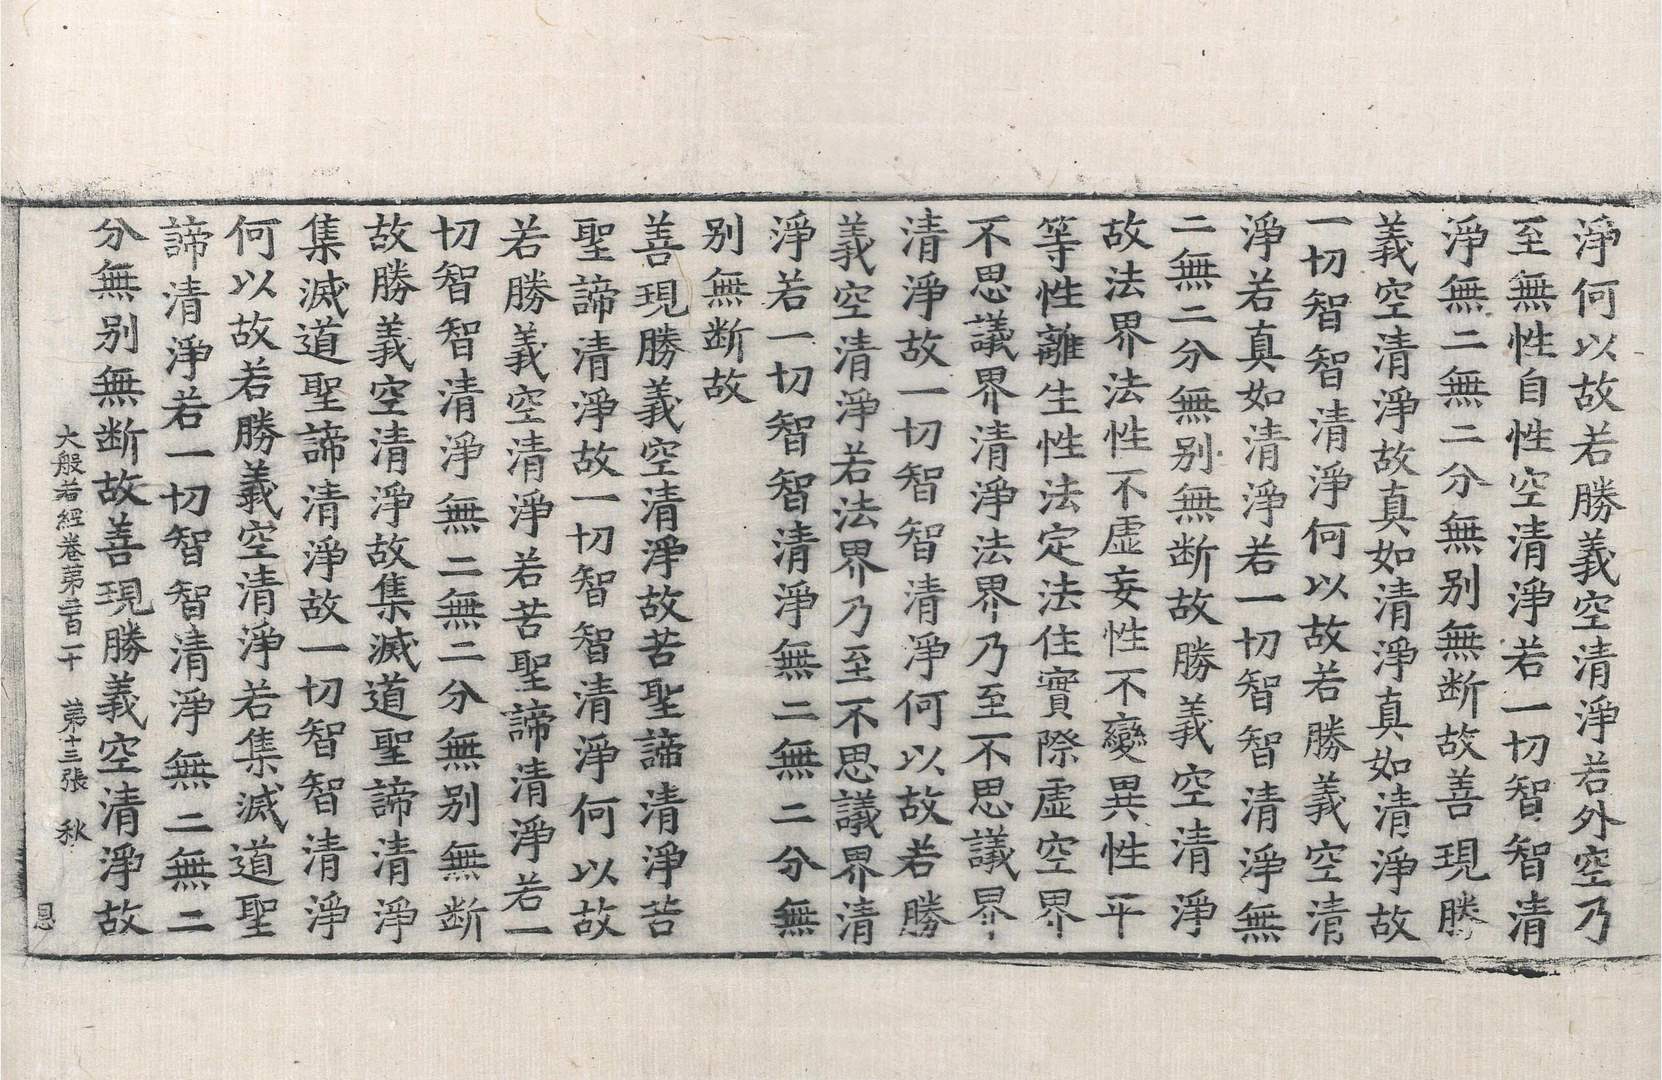 淨何以故若勝義空清淨若外空乃
至無性自性空清淨若一切智智清
淨無二無二分無別無断故善現勝
義空清淨故真如清淨真如清淨故
一切智智清淨何以故若勝義空清
淨若真如清淨若一切智智清淨無
二無二分無別無断故勝義空清淨
故法界法性不虛妄性不變異性平
等性離生性法定法住實際虛空界
不思議界清淨法界乃至不思議界
清淨故一切智智清淨何以故若勝
義空清淨若法界乃至不思議界清
淨若一切智智清淨無二無二分無
別無断故
善現勝義空清淨故苦聖諦清淨苦
聖諦清淨故一切智智清淨何以故
若勝義空清淨若苦聖諦清淨若一
切智智清淨無二無二分無別無断
故勝義空清淨故集滅道聖諦清淨
集滅道聖諦清淨故一切智智清淨
何以故若勝義空清淨若集滅道聖
諦清淨若一切智智清淨無二無二
分無別無断故善現勝義空清淨故
大般若經卷第二百一十 第十三張 秋
恩